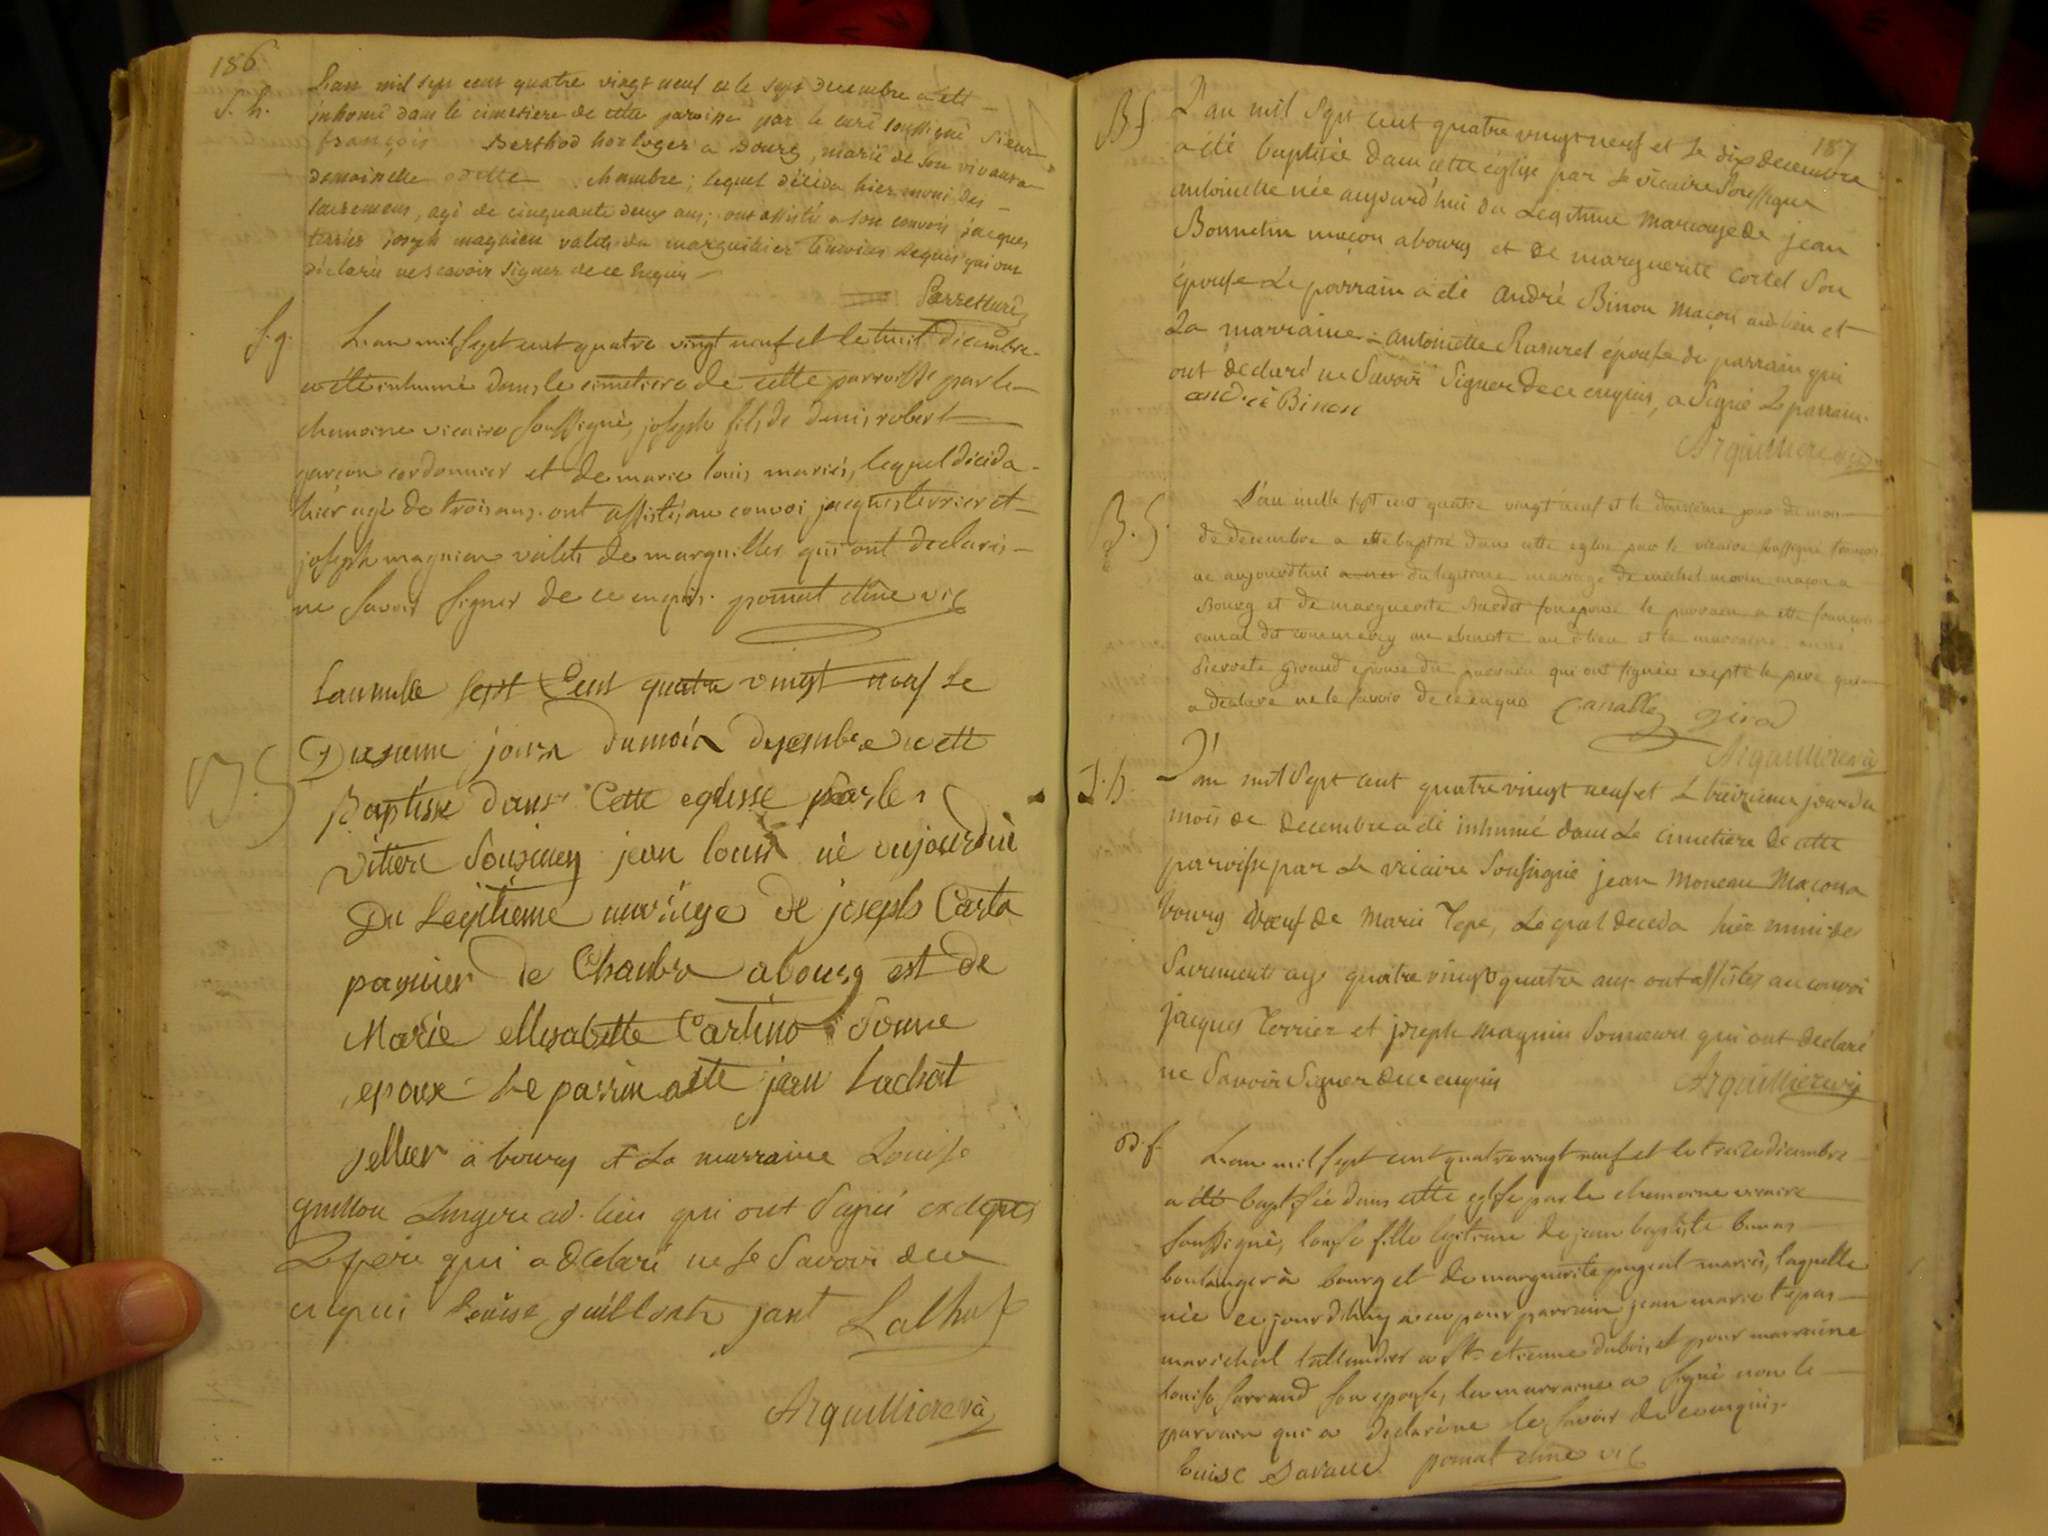 186
S. h.
L'an mil sept cent quatre vingt neuf et le sept decembre a été
inhumé dans le cimetiere de cette paroisse par le curé soussigné Sieur
françois Berthod horloger a Bourg, marié de son vivant a
demoiselle odette chambre; lequel décéda hier muni des
sacremens, agé de cinquante deux ans; ont assisté a son convoi jacques
terrier joseph magnien valets du marguillier témoins requis qui ont
déclaré ne scavoir signer de ce enquis
S. g.
L'an mil sept cent quatre vingt neuf et le huit décembre
a été inhumé dans le cimetiere de cette parroisse par le
chanoine vicaire soussigné, joseph fils de denis robert
garçon cordonnier et de marie louis mariés, lequel décéda
hier agé de trois ans. ont assistés au convoi jacques terrier et
joseph magnien valets de marguillier qui ont declarés
ne savoir signer de ce enquis. pomat chne vic
B S
Lan mille sept Cent quatre vingt neuf le
Dixieme jour du mois desembre a ette
Baptisse dans Cette eglisse par le
jean louis né aujourdui
Du Legitieme mariage de joseph Carta
de Chambre a bourg est de
Marie ellisabette Cartino sonne
epouse Le parrin a ette jean Lachat
sellier a bourg et La marraine Louise
guillon Lingere au lieu qui ont Signé exceptes
Le pere qui a déclaré ne le Savoir de ce
enquis Louise guillon jant Lalhat
Arquilliere vic
187
B f.
L'an mil sept cent quatre vingt neuf et le dix decembre
a été baptisée dans cette église par le vicaire soussigné
antoinette née aujourd'hui du Legitime mariage de jean
Bonnelin maçon a bourg et de marguerite cortel son
épouse Le parrain a été andré Binon maçon au dit lieu et
La marraine antoinette épouse de parrain qui
ont déclaré ne Savoir Signer de ce enquis, a Signé Le parrain.
andré Binon
Arquilliere vic
B. S.
L'an mille sept cent quatre vingt neuf et le douzieme jour du mois
de decembre a ette baptisé dans cette eglise par le vicaire soussigné francois
ne aujourd'hui du legitime mariage de michel morin maçon a
Bourg et de marguerite Bardot son epouse le parrain a ette francois
canal dit ebeniste au dit lieu et la marraine anne
Pierrette giroud epouse du parrain qui ont signées excepté le pere qui
a declare ne le savoir de ce enquis Canalle giro
Arquilliere vic
S. h.
L'an mil Sept cent quatre vingt neuf et Le treizieme jour du
mois de decembre a été inhumé dans Le cimetiere de cette
paroisse par Le vicaire Soussigné jean Moneau Maçon a
bourg veuf de Marie Tepe, Lequel deceda hier muni des
Sacrements agé quatre vingt quatre ans ont assistés au convoi
jacques Terrier et joseph magnin Sonneurs qui ont declaré
ne Savoir Signer de ce enquis Arquilliere vic
B. f.
L'an mil sept cent quatre vingt neuf et le treize décembre
a été baptisée dans cette eglise par le chanoine vicaire
soussigné, louise fille legitime de jean baptiste bunas
boulanger à bourg et de marguerite pugeat mariés, laquelle
née ce jourd'huy a eu pour parrain jean marie trépas
maréchal taillandier a St. etienne dubois, et pour marraine
louise son epouse, la marraine a signé non le
parrain qui a déclaré ne le savoir de ce enquis.
louise pomat chne vic